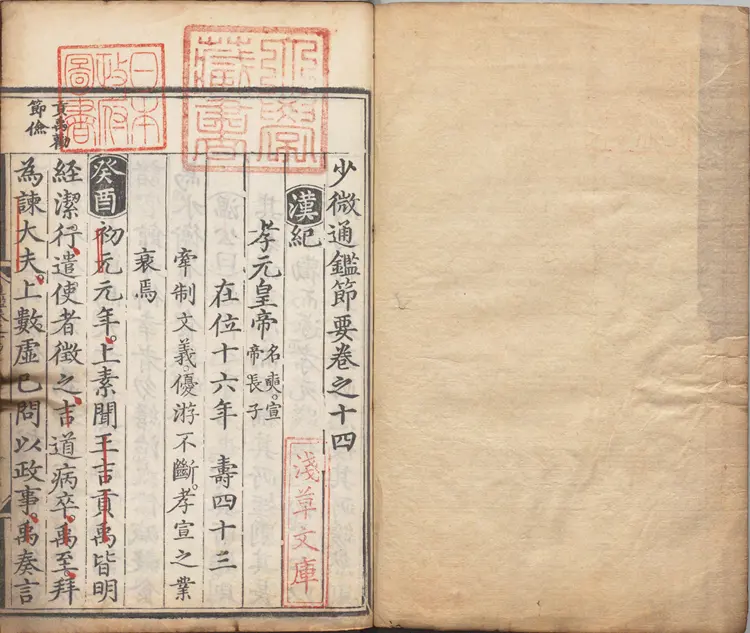 少微通鑑節要卷之十四
漢紀
孝元皇帝
名奭宣
帝長子
在位十六年 壽四十三
牽制文義。優游不斷。孝宣之業
衰焉
癸酉 初元元年。上素聞王吉貢禹皆明
経潔行。遣使者徵之。吉道病卒。禹至。拜
為諫大夫。上數虛已問以政事。禹奏言
貢禹勸
節儉
藏書
日本
政府
圖書
淺草文庫